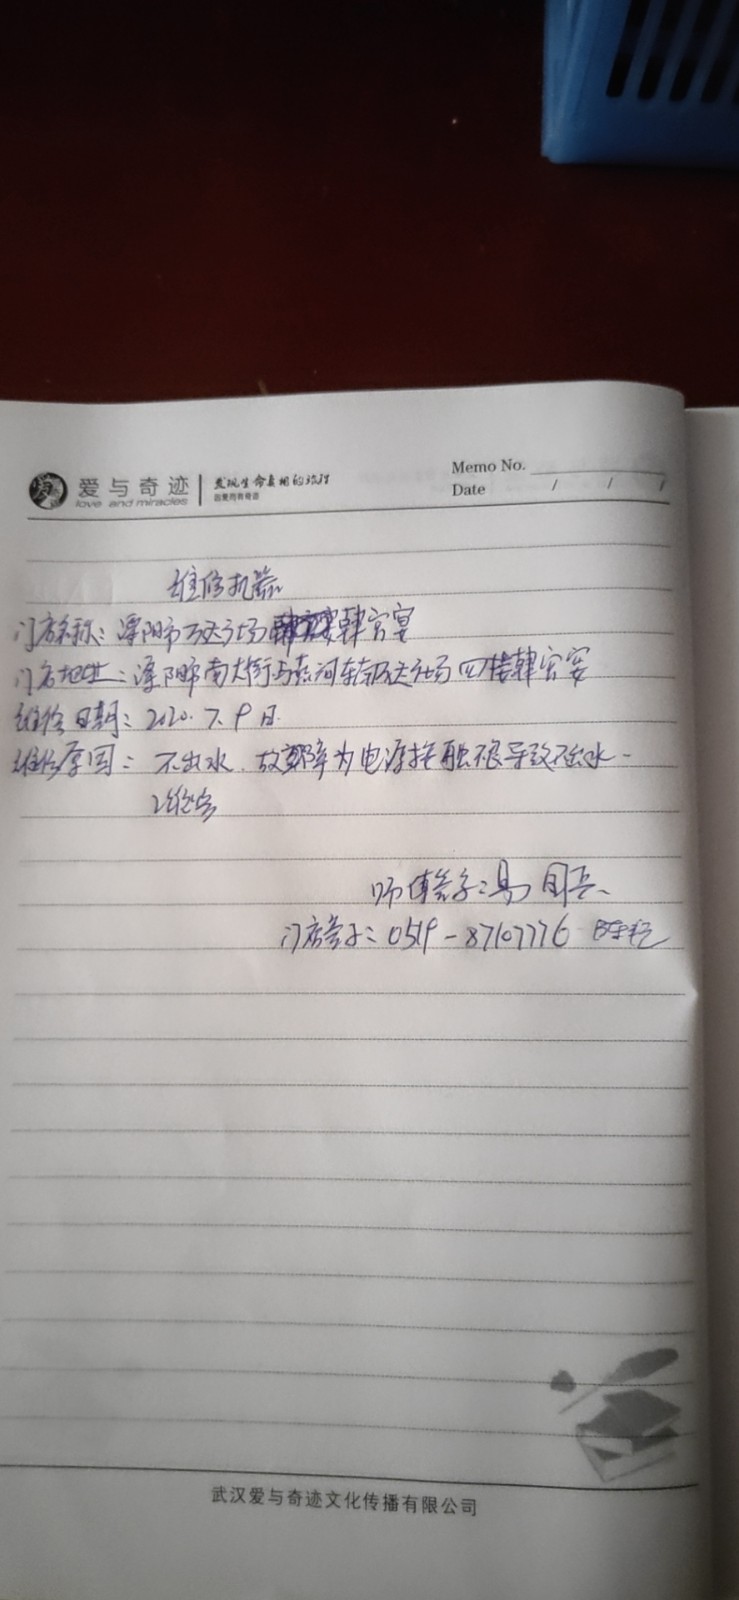 爱与奇迹
love and miracles
发现生命真相的旅程
Memo No.
Date / / /
维修机器
门店名称：溧阳市万达广场韩宫宴
门店地址：溧阳市南大街与燕河东路万达广场四楼韩宫宴
维修日期：2020.7.9日.
维修原因：不出水.故障为电源接触不良导致不出水-
师傅签字：易国兵.
门店签字：0519-87107776
武汉爱与奇迹文化传播有限公司